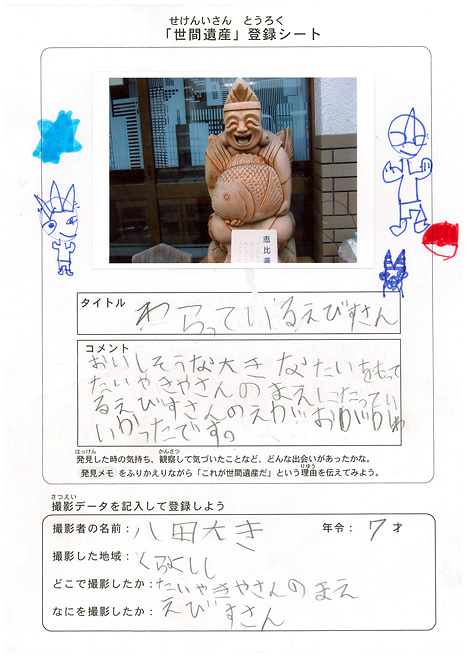 せけんいさん とうろく
「世間遺産」登録シート
恵比
タイトル
わらっているえびすさん
コメント
おいしそうな大きなたいをもって
たいやきやさんのまえにたってい
るえびすさんのえがおがかわ
いかったです。
はっけん かんさつ
発見した時の気持ち、観察して気づいたことなど、どんな出会いがあったかな。
りゆう
発見メモをふりかえりながら「これが世間遺産だ」という理由を伝えてみよう。
さつえい
撮影データを記入して登録しよう
撮影者の名前：八田大き 年令：7才
撮影した地域：くらよしし
どこで撮影したか：たいやきやさんのまえ
なにを撮影したか：えびすさん